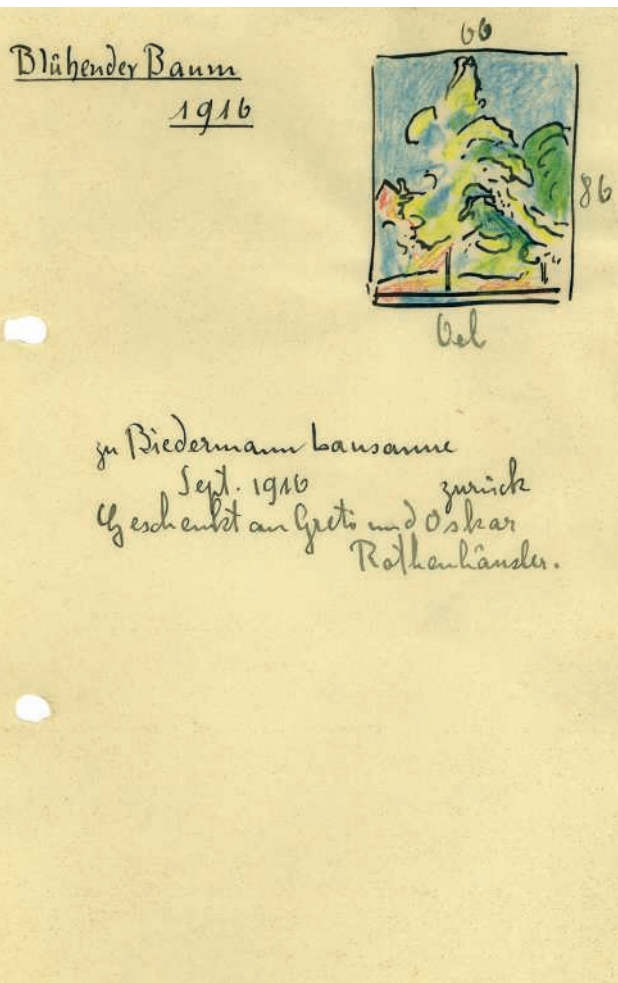 Blühender Baum
1916
66
86
Oel
zu Biedermann Lausanne
Sept. 1916 zurück
Geschenkt an Greti und Oskar
Rothenhäusler.